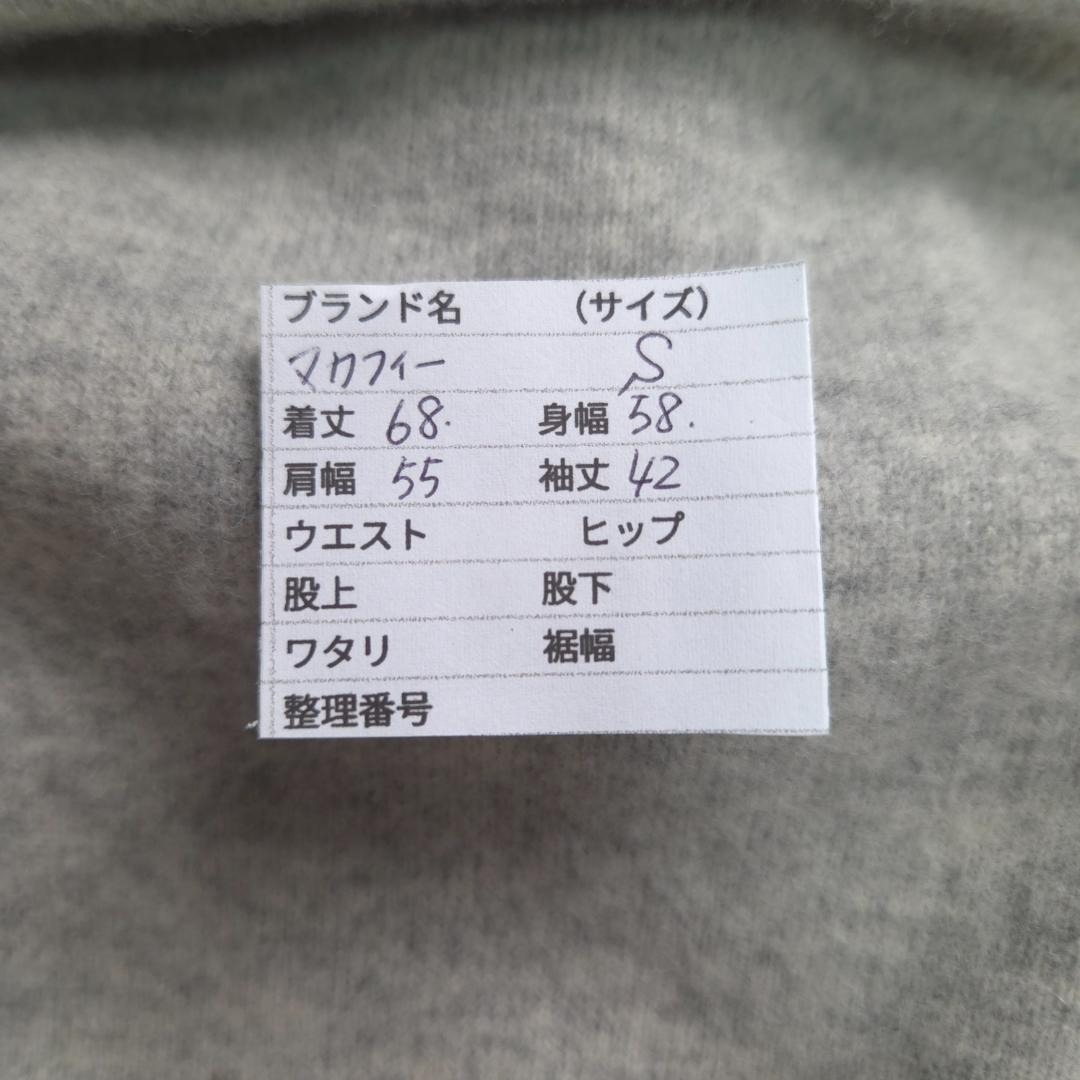 ブランド名 (サイズ)
マカフィー S
着丈 68. 身幅 58.
肩幅 55 袖丈 42
ウエスト ヒップ
股上 股下
ワタリ 裾幅
整理番号